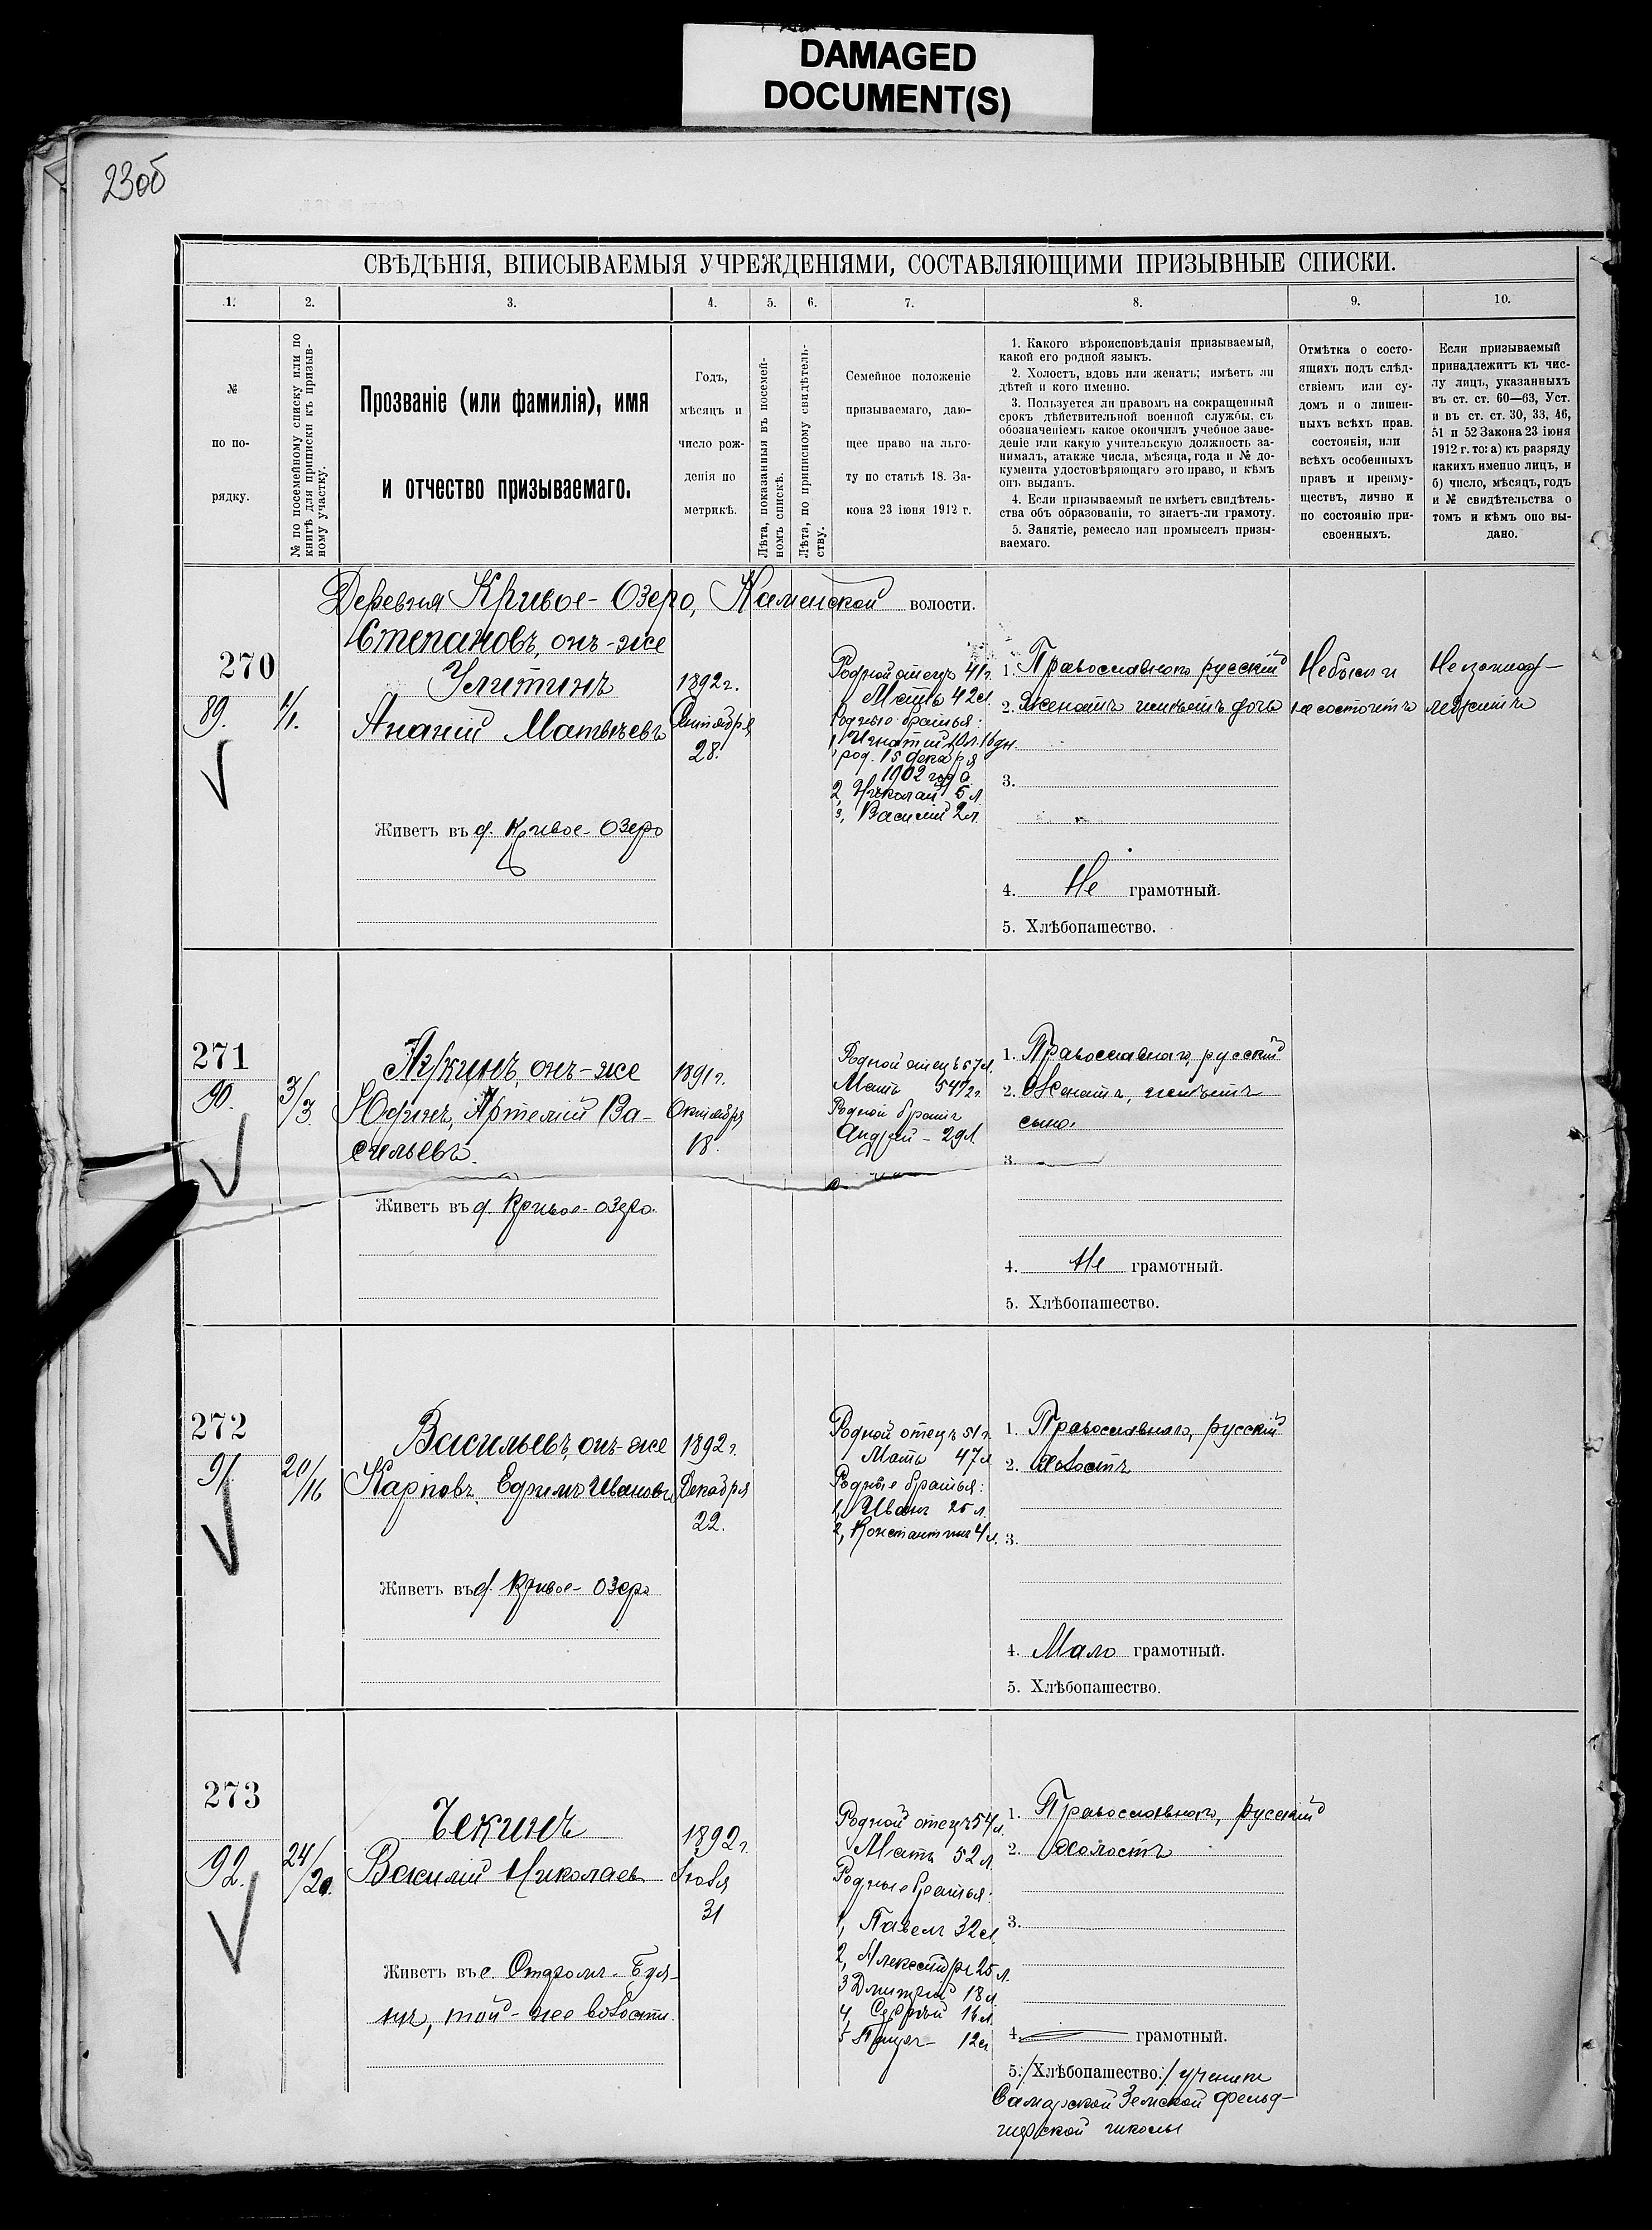 DAMAGED
DOCUMENT(S)
23об
СВѢДѢНІЯ, ВПИСЫВАЕМЫЯ УЧРЕЖДЕНІЯМИ, СОСТАВЛЯЮЩИМИ ПРИЗЫВНЫЕ СПИСКИ.
1. 2. 3. 4. 5. 6. 7. 8. 9. 10.
№
по по-
рядку.
№ по посемейному списку или по
книгѣ для приписки къ призыв-
ному участку.
Прозваніе (или фамилія), имя
и отчество призываемаго.
Годъ,
мѣсяцъ и
число рож-
денія по
метрикѣ.
Лѣта, показанныя въ посемей-
номъ спискѣ.
Лѣта, по приписному свидѣтель-
ству.
Семейное положеніе
призываемаго, даю-
щее право на льго-
ту по статьѣ 18. За-
кона 23 іюня 1912 г.
1. Какого вѣроисповѣданія призываемый,
какой его родной языкъ.
2. Холостъ, вдовъ или женатъ; имѣетъ ли
дѣтей и кого именно.
3. Пользуется ли правомъ на сокращенный
срокъ дѣйствительной военной службы, съ
обозначеніемъ какое окончилъ учебное заве-
деніе или какую учительскую должность за-
нималъ, атакже числа, мѣсяца, года и № до-
кумента удостовѣряющаго это право, и кѣмъ
онъ выданъ.
4. Если призываемый не имѣетъ свидѣтель-
ства объ образованіи, то знаетъ-ли грамоту.
5. Занятіе, ремесло или промыселъ призы-
ваемаго.
Отмѣтка о состо-
ящихъ подъ слѣд-
ствіемъ или су-
домъ и о лишен-
ныхъ всѣхъ прав.
состоянія, или
всѣхъ особенныхъ
правъ и преиму-
ществъ, лично и
по состоянію при-
своенныхъ.
Если призываемый
принадлежитъ къ чис-
лу лицъ, указанныхъ
въ ст. ст. 60—63, Уст.
и въ ст. ст. 30, 33, 46,
51 и 52 Закона 23 іюня
1912 г. то: а) къ разряду
какихъ именно лицъ, и
б) число, мѣсяцъ, годъ
и № свидѣтельства о
томъ и кѣмъ оно вы-
дано.
Деревня Кривое-Озеро, Каменской волости.
270
89.
1/1.
Степановъ, онъ-же
Улитинъ
Ананій Матвѣевъ
Живетъ въ д. Кривое-Озеро
1892 г.
28.
Родной отецъ 41 г.
Мать 42 л.
Родные братья:
1, Игнатій 10 л. 16 дн.
род. 15 декабря
1902 года
2, Николай 5 л.
3, Василій 2 л.
1. Православнаго, русскій
2. Женатъ имѣетъ дочь
3.
4. Не грамотный.
5. Хлѣбопашество.
Небылъ и
не состоитъ
Не принад-
лежитъ
271
90.
3/3.
онъ-же
Юдинъ, Артемій Ва-
сильевъ.
Живетъ въ д. Кривое-озеро.
1891 г.
Октября
18.
Родной отецъ 57 л.
Мать 54 г.
Родной братъ
Андрей - 29 л.
1. Православнаго, русскій
2. Женатъ, имѣетъ
сына.
3.
4. Не грамотный.
5. Хлѣбопашество.
272
91
20/16
Васильевъ, онъ-же
Карповъ, Ефимъ Ивановъ
Живетъ въ д. Кривое-Озеро
1892 г.
Декабря
22.
Родной отецъ 51 г.
Мать 47 л.
Родные братья:
1, Иванъ 25 л.
2, Константинъ 4 л.
1. Православнаго, русскій
2. Холостъ
3.
4. Мало грамотный.
5. Хлѣбопашество.
273
92.
24/20.
Чекинъ
Василій Николаев
Живетъ въ с. Старомъ-Буя-
нѣ, той-же волости.
1892 г.
31
Родной отецъ 54 л.
Мать 52 л.
Родные братья:
1, Павелъ 32 л.
2, Александръ 25 л.
3 Дмитрій 18 л.
4, Сергѣй 16 л.
5 12 л.
1. Православнаго, русскій
2. Холостъ
3.
4. грамотный.
5. /Хлѣбопашество./ ученикъ
Самарской Земской фельд-
шерской школы